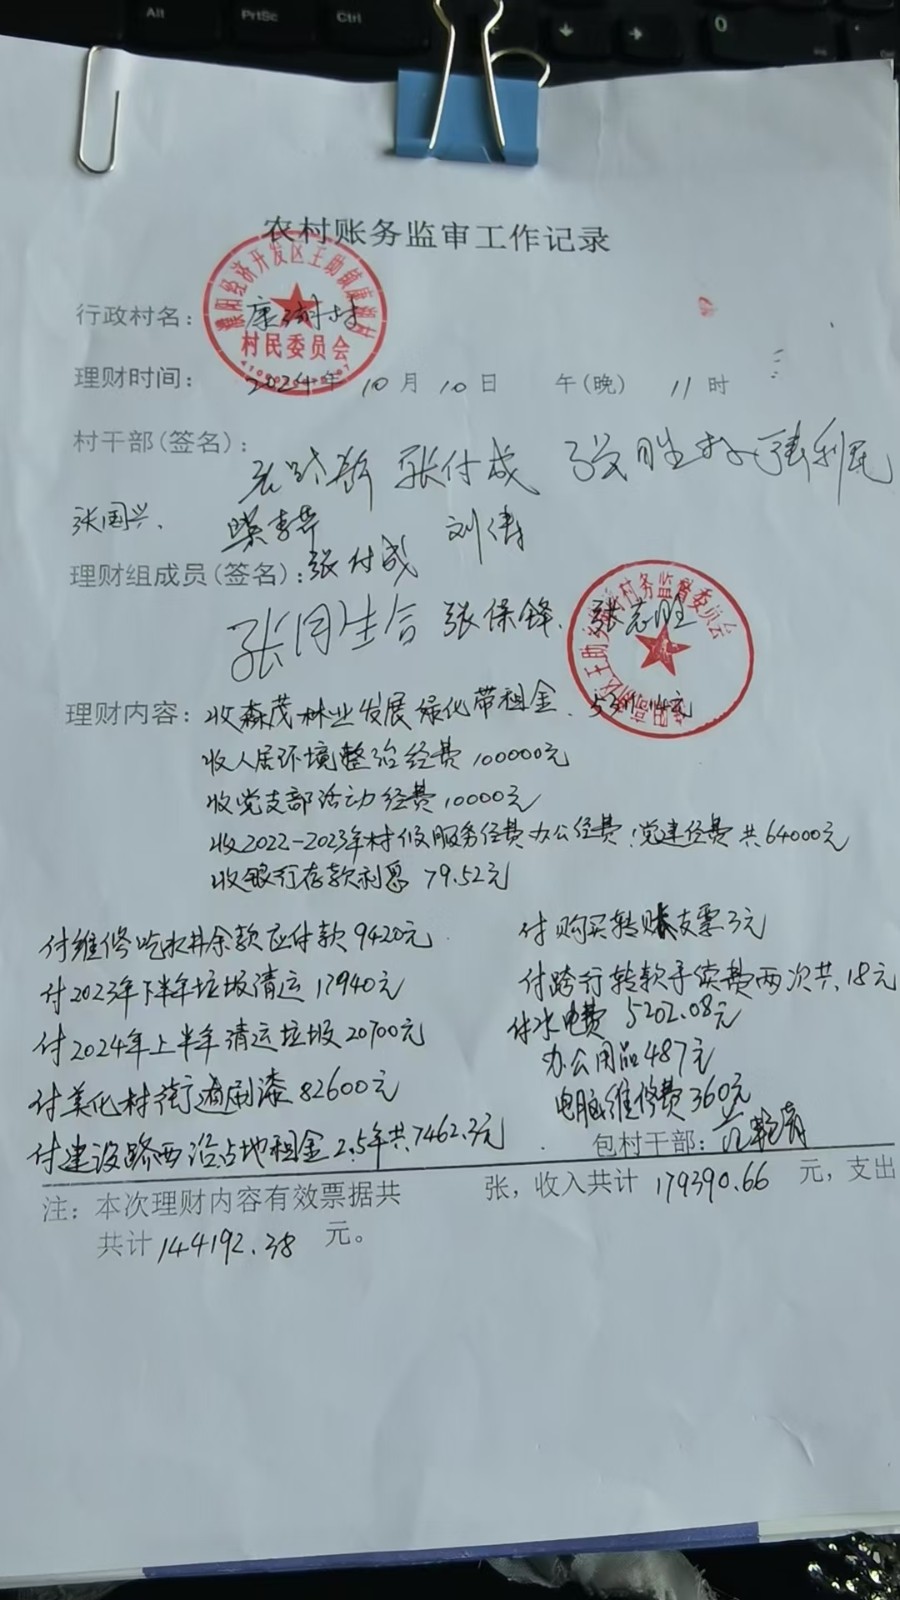 Alt
PrtSc
Ctrl
农村账务监审工作记录
行政村名：康湖村
村民委员会
理财时间： 2024年 10月 10日 午(晚) 11时
村干部(签名)：
张付成 张胜 张利民
张国兴、 刘涛
理财组成员(签名)：张付成
张同生合 张保锋、 张志胜
理财内容：收森茂林业发展绿化带租金、 5311.14元
收人居环境整治经费100000元
收党支部活动经费10000元
收2022-2023年村级服务经费办公经费、党建经费共64000元
收银行存款利息 79.52元
付维修吃水井余款应付款9420元
付2023年下半年垃圾清运17940元
付2024年上半年清运垃圾20700元
付美化村街道刷漆82600元
付建设路西沿占地租金2.5年共7462.3元
付购买转账支票3元
付跨行转款手续费两次共18元
付水电费 5202.08元
办公用品487元
电脑维修费360元
包村干部：
注：本次理财内容有效票据共 张，收入共计 179390.66 元，支出
共计144192.38 元。